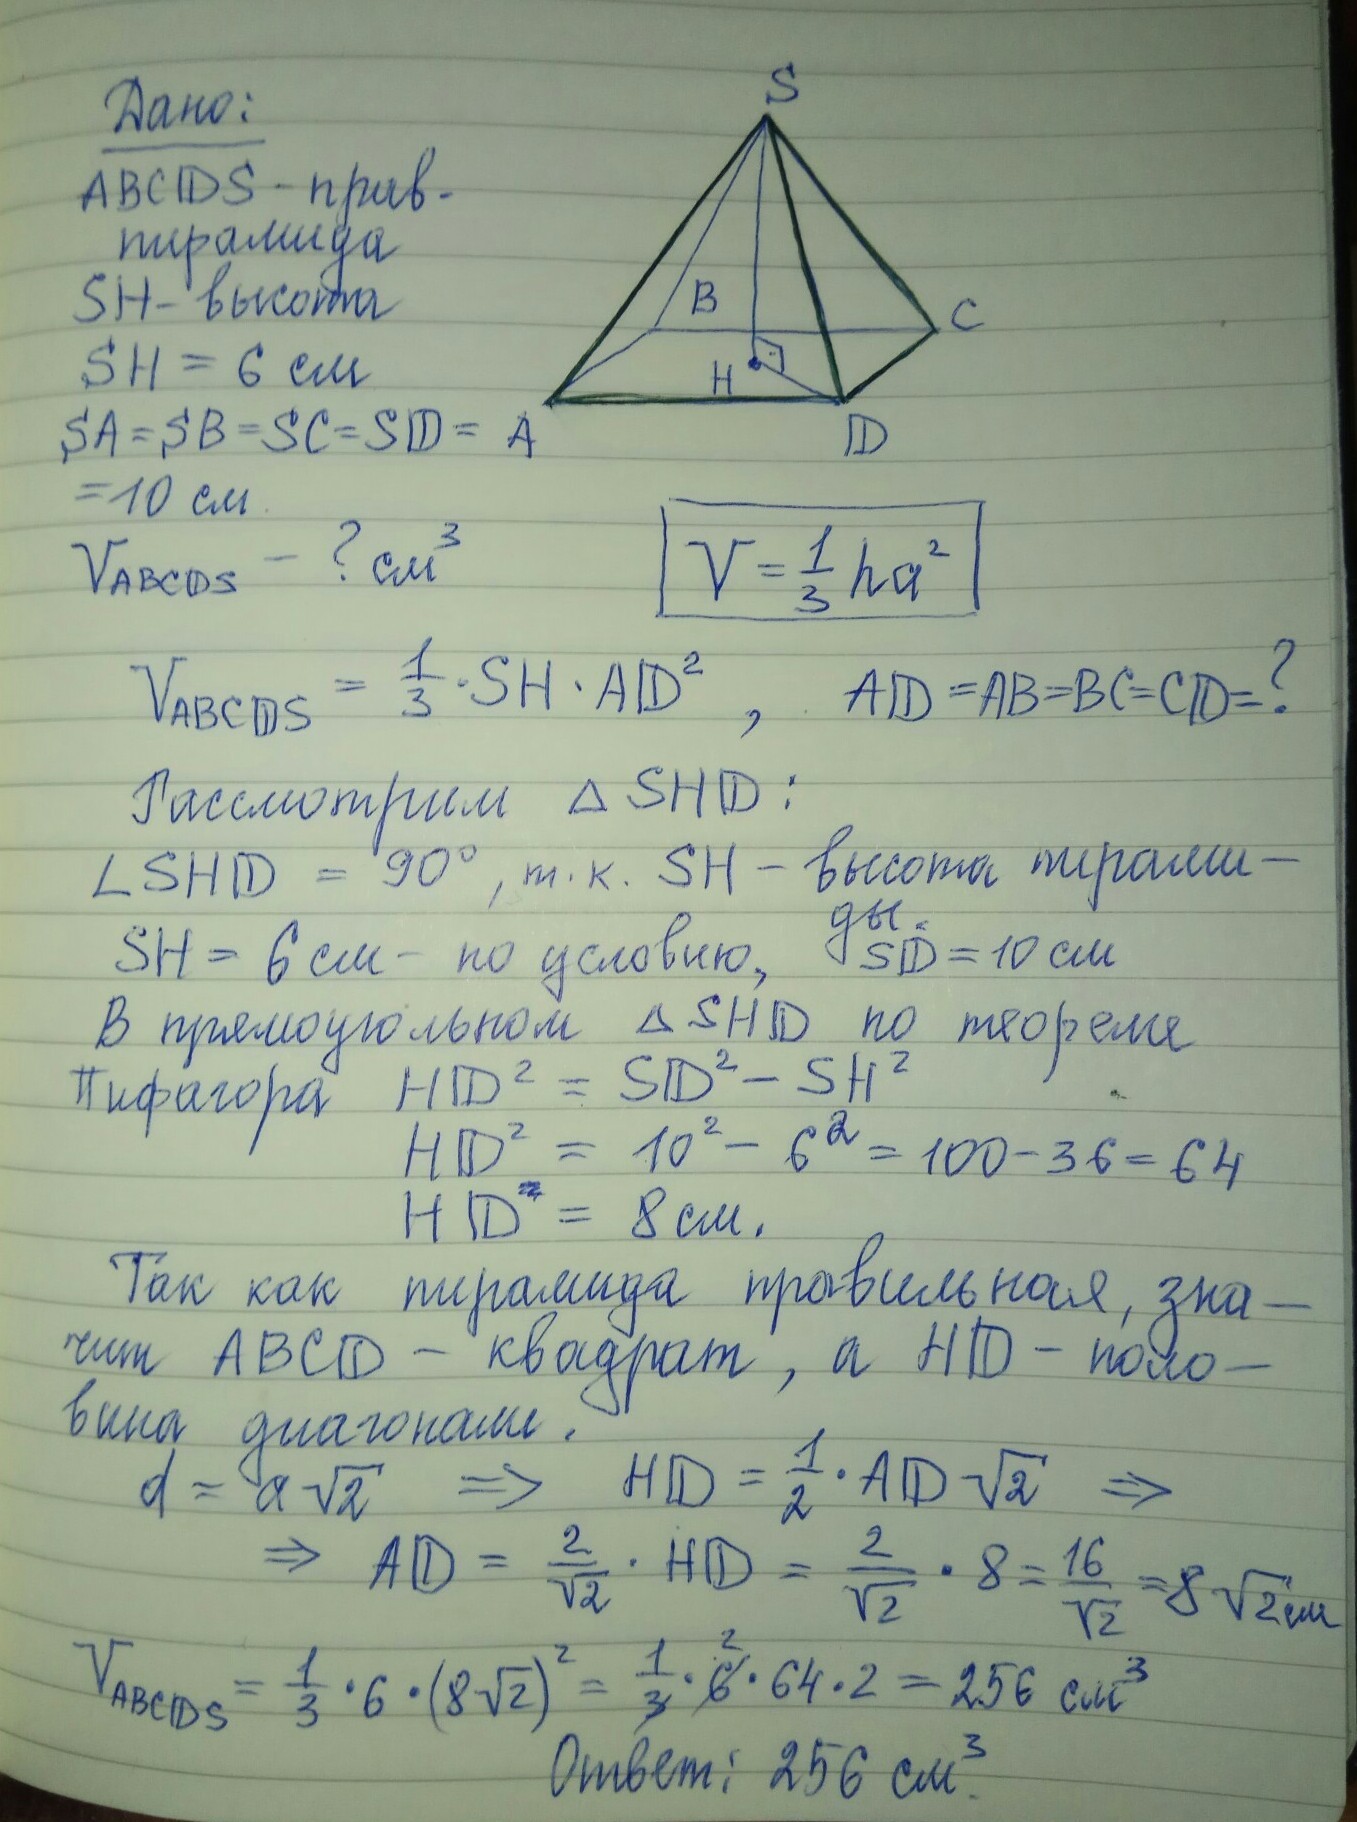 Дано:
S
ABCDS - прав.
пирамида
SH - высота
B
C
SH = 6 см
H
SA = SB = SC = SD =
A
D
= 10 см
V = 1/3 ha²
V_ABCDS - ? см³
V_ABCDS = 1/3 · SH · AD², AD = AB = BC = CD = ?
Рассмотрим △ SHD :
∠SHD = 90°, т.к. SH - высота пирами-
ды.
SH = 6 см - по условию, SD = 10 см
В прямоугольном △ SHD по теореме
Пифагора HD² = SD² - SH²
HD² = 10² - 6² = 100 - 36 = 64
HD = 8 см.
Так как пирамида правильная, зна-
чит ABCD - квадрат, а HD - поло-
вина диагонали.
d = a√2 ⇒ HD = 1/2 · AD √2 ⇒
⇒ AD = 2/√2 · HD = 2/√2 · 8 = 16/√2 = 8√2 см
V_ABCDS = 1/3 · 6 · (8√2)² = 1/3 · 6 2 · 64 · 2 = 256 см³
Ответ: 256 см³.